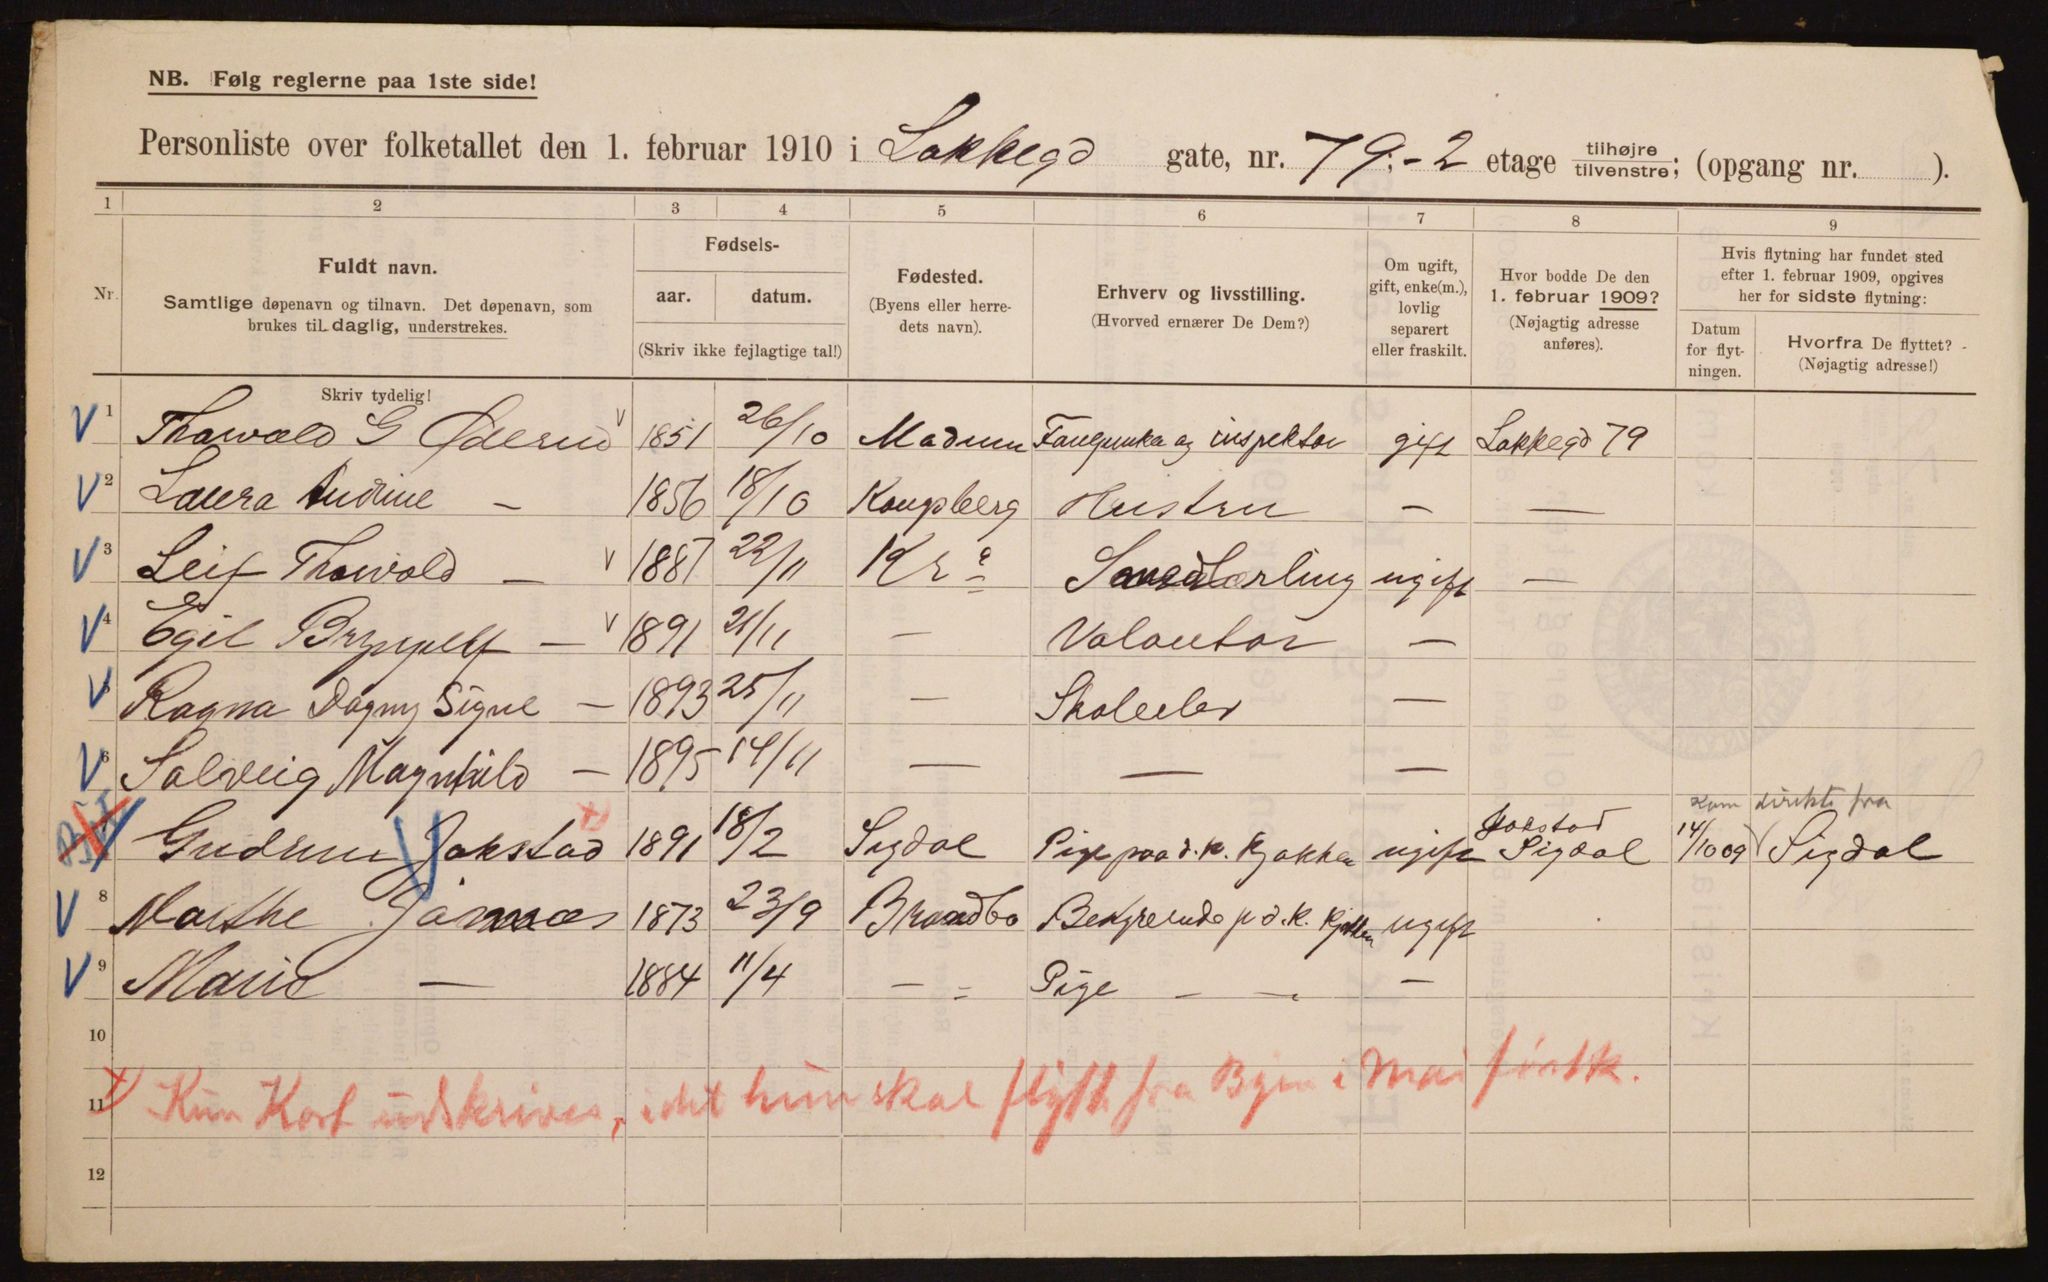 NB. Følg reglerne paa 1ste side!
Personliste over folketallet den 1. februar 1910 i Lakkegd gate, nr. 79;-2 etage tilhøjre tilvenstre; (opgang nr. ).
1 2 3 4 5 6 7 8 9
Nr.
Fuldt navn.
Samtlige døpenavn og tilnavn. Det døpenavn, som
brukes til daglig, understrekes.
Fødsels-
aar. datum.
(Skriv ikke fejlagtige tal!)
Fødested.
(Byens eller herre-
dets navn).
Erhverv og livsstilling.
(Hvorved ernærer De Dem?)
Om ugift,
gift, enke(m.),
lovlig
separert
eller fraskilt.
Hvor bodde De den
1. februar 1909?
(Nøjagtig adresse
anføres).
Hvis flytning har fundet sted
efter 1. februar 1909, opgives
her for sidste flytning:
Datum
for flyt-
ningen.
Hvorfra De flyttet?
(Nøjagtig adresse!)
Skriv tydelig!
1 Thorvald G Øderud 1851 26/10 Modum og inspektør gift Lakkegd 79
2 Laura Andrine — 1856 18/10 Kongsberg Hustru — —
3 Leif Thorvald — 1887 22/11 Kra ugift —
4 Egil Brynjulf — 1891 21/11 — Volontør —
5 Ragna Dagny Signe — 1893 25/11 — Skoleelev —
6 Solveig Magnhild — 1895 14/11 — — —
kom direkte fra
Jokstad
Gudrun Jokstad 1891 18/2 Sigdal Pige paa d.k. kjøkken ugift Sigdal 14/10 09 Sigdal
8 Marthe 1873 23/9 Brandbo Bestyrerinde p d.k. kjøkken ugift
9 Marie — 1884 11/4 — Pige — — —
10
11 x) Kun Kort udskrives, idet hun skal flytte fra Byen i Mai førstk.
12